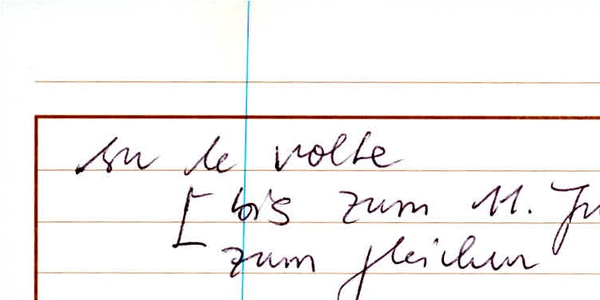 su le volte
[ bis zum 11. Ju
zum gleichen